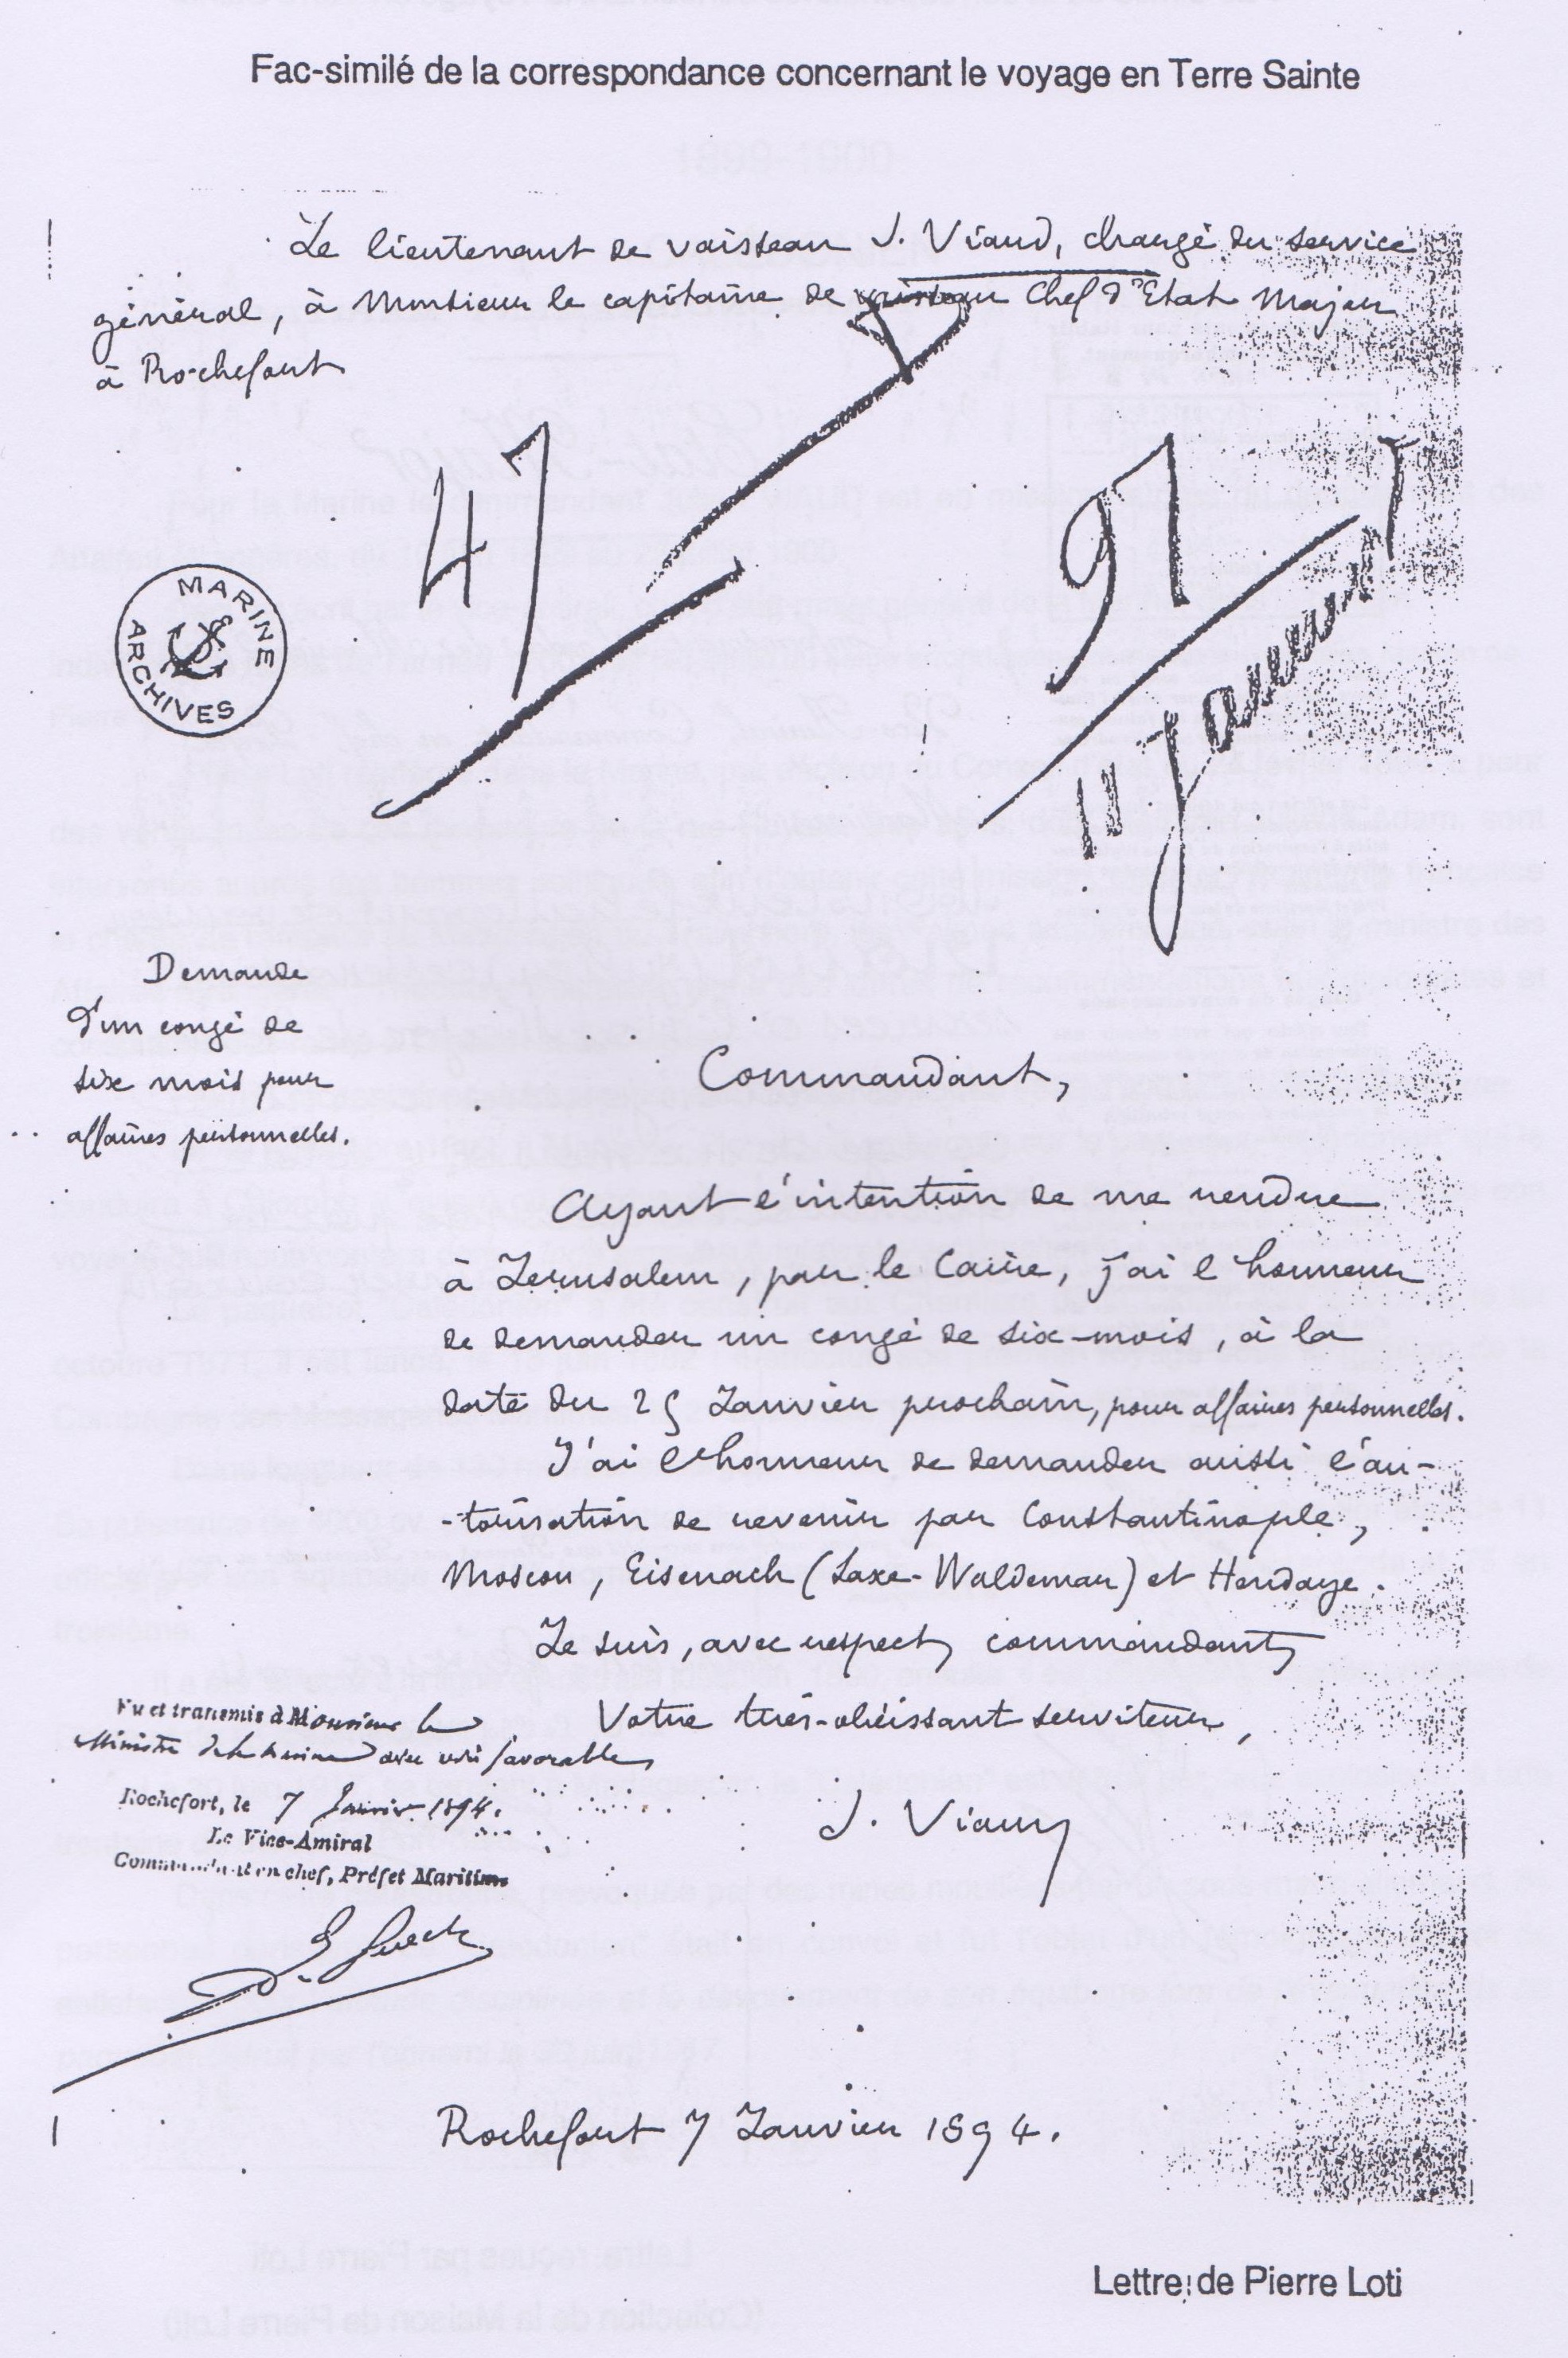 Fac-similé de la correspondance concernant le voyage en Terre Sainte
Le lieutenant de vaisseau J. Viaud, chargé du service
général, à Monsieur le capitaine de vaisseau Chef d'Etat Major
à Rochefort
47
91
11 Janvier
MARINE
ARCHIVES
Demande
d'un congé de
six mois pour
affaires personnelles.
Commandant,
Ayant l'intention de me rendre
à Jerusalem, par le Caire, j'ai l'honneur
de demander un congé de six-mois, à la
date du 25 Janvier prochain, pour affaires personnelles.
J'ai l'honneur de demander aussi l'au-
-torisation de revenir par Constantinople,
Moscou, Eisenach (Saxe-Waldemar) et Hendaye.
Je suis, avec respect, commandant,
Votre très-obéissant serviteur,
J. Viaud
Vu et transmis à Monsieur le
Ministre de la Marine avec avis favorable
Rochefort, le 7 Janvier 1894.
Le Vice-Amiral
Commandant en chef, Préfet Maritime
Rochefort 7 Janvier 1894.
Lettre de Pierre Loti